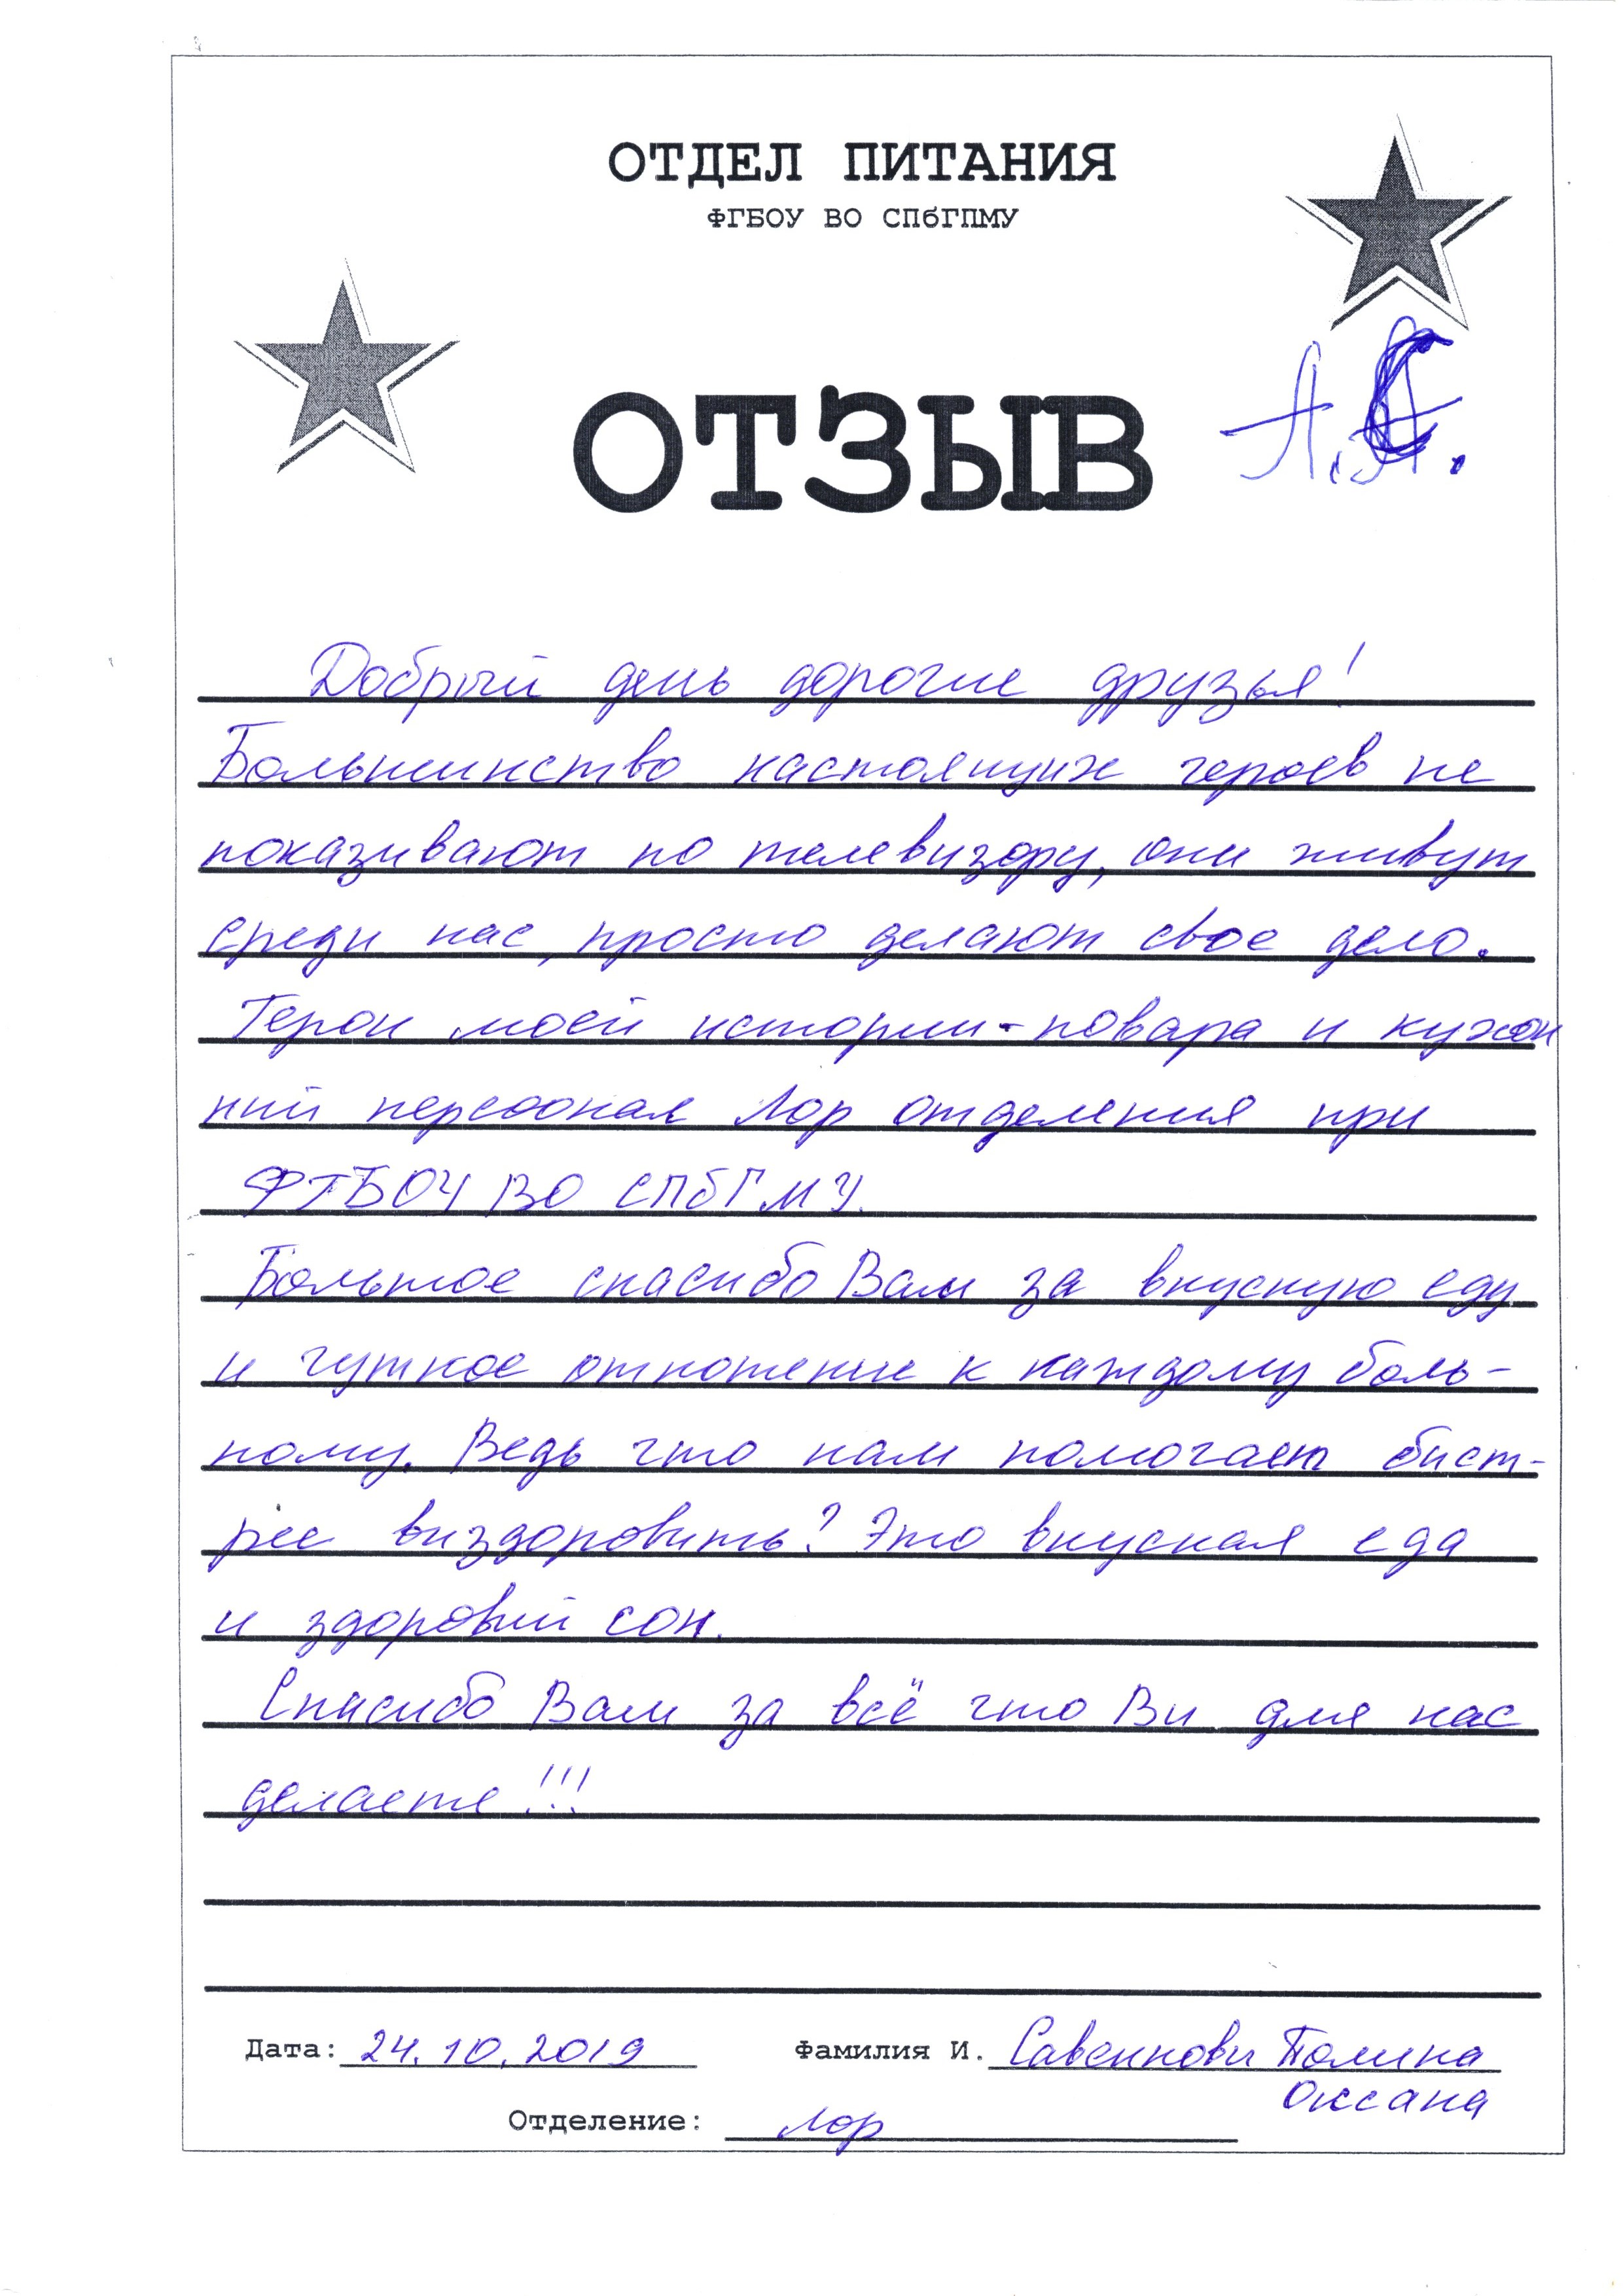 ОТДЕЛ ПИТАНИЯ
ФГБОУ ВО СПбГПМУ
ОТЗЫВ
Добрый день дорогие друзья!
Большинство настоящих героев не
показивают по телевизору, они живут
среди нас, просто делают свое дело.
Герои моей истории - повара и кухон
ний персоонал Лор отделения при
ФГБОУ ВО СПбГМУ.
Большое спасибо Вам за вкусную еду
и чуткое отношение к каждому боль-
ному. Ведь что нам помогает бист-
рее виздоровить? Это вкусная еда
и здоровий сон.
Спасибо Вам за всё что Ви для нас
делаете!!!
Дата: 24.10.2019 Фамилия И. Савенкови Полина
Оксана
Отделение: Лор